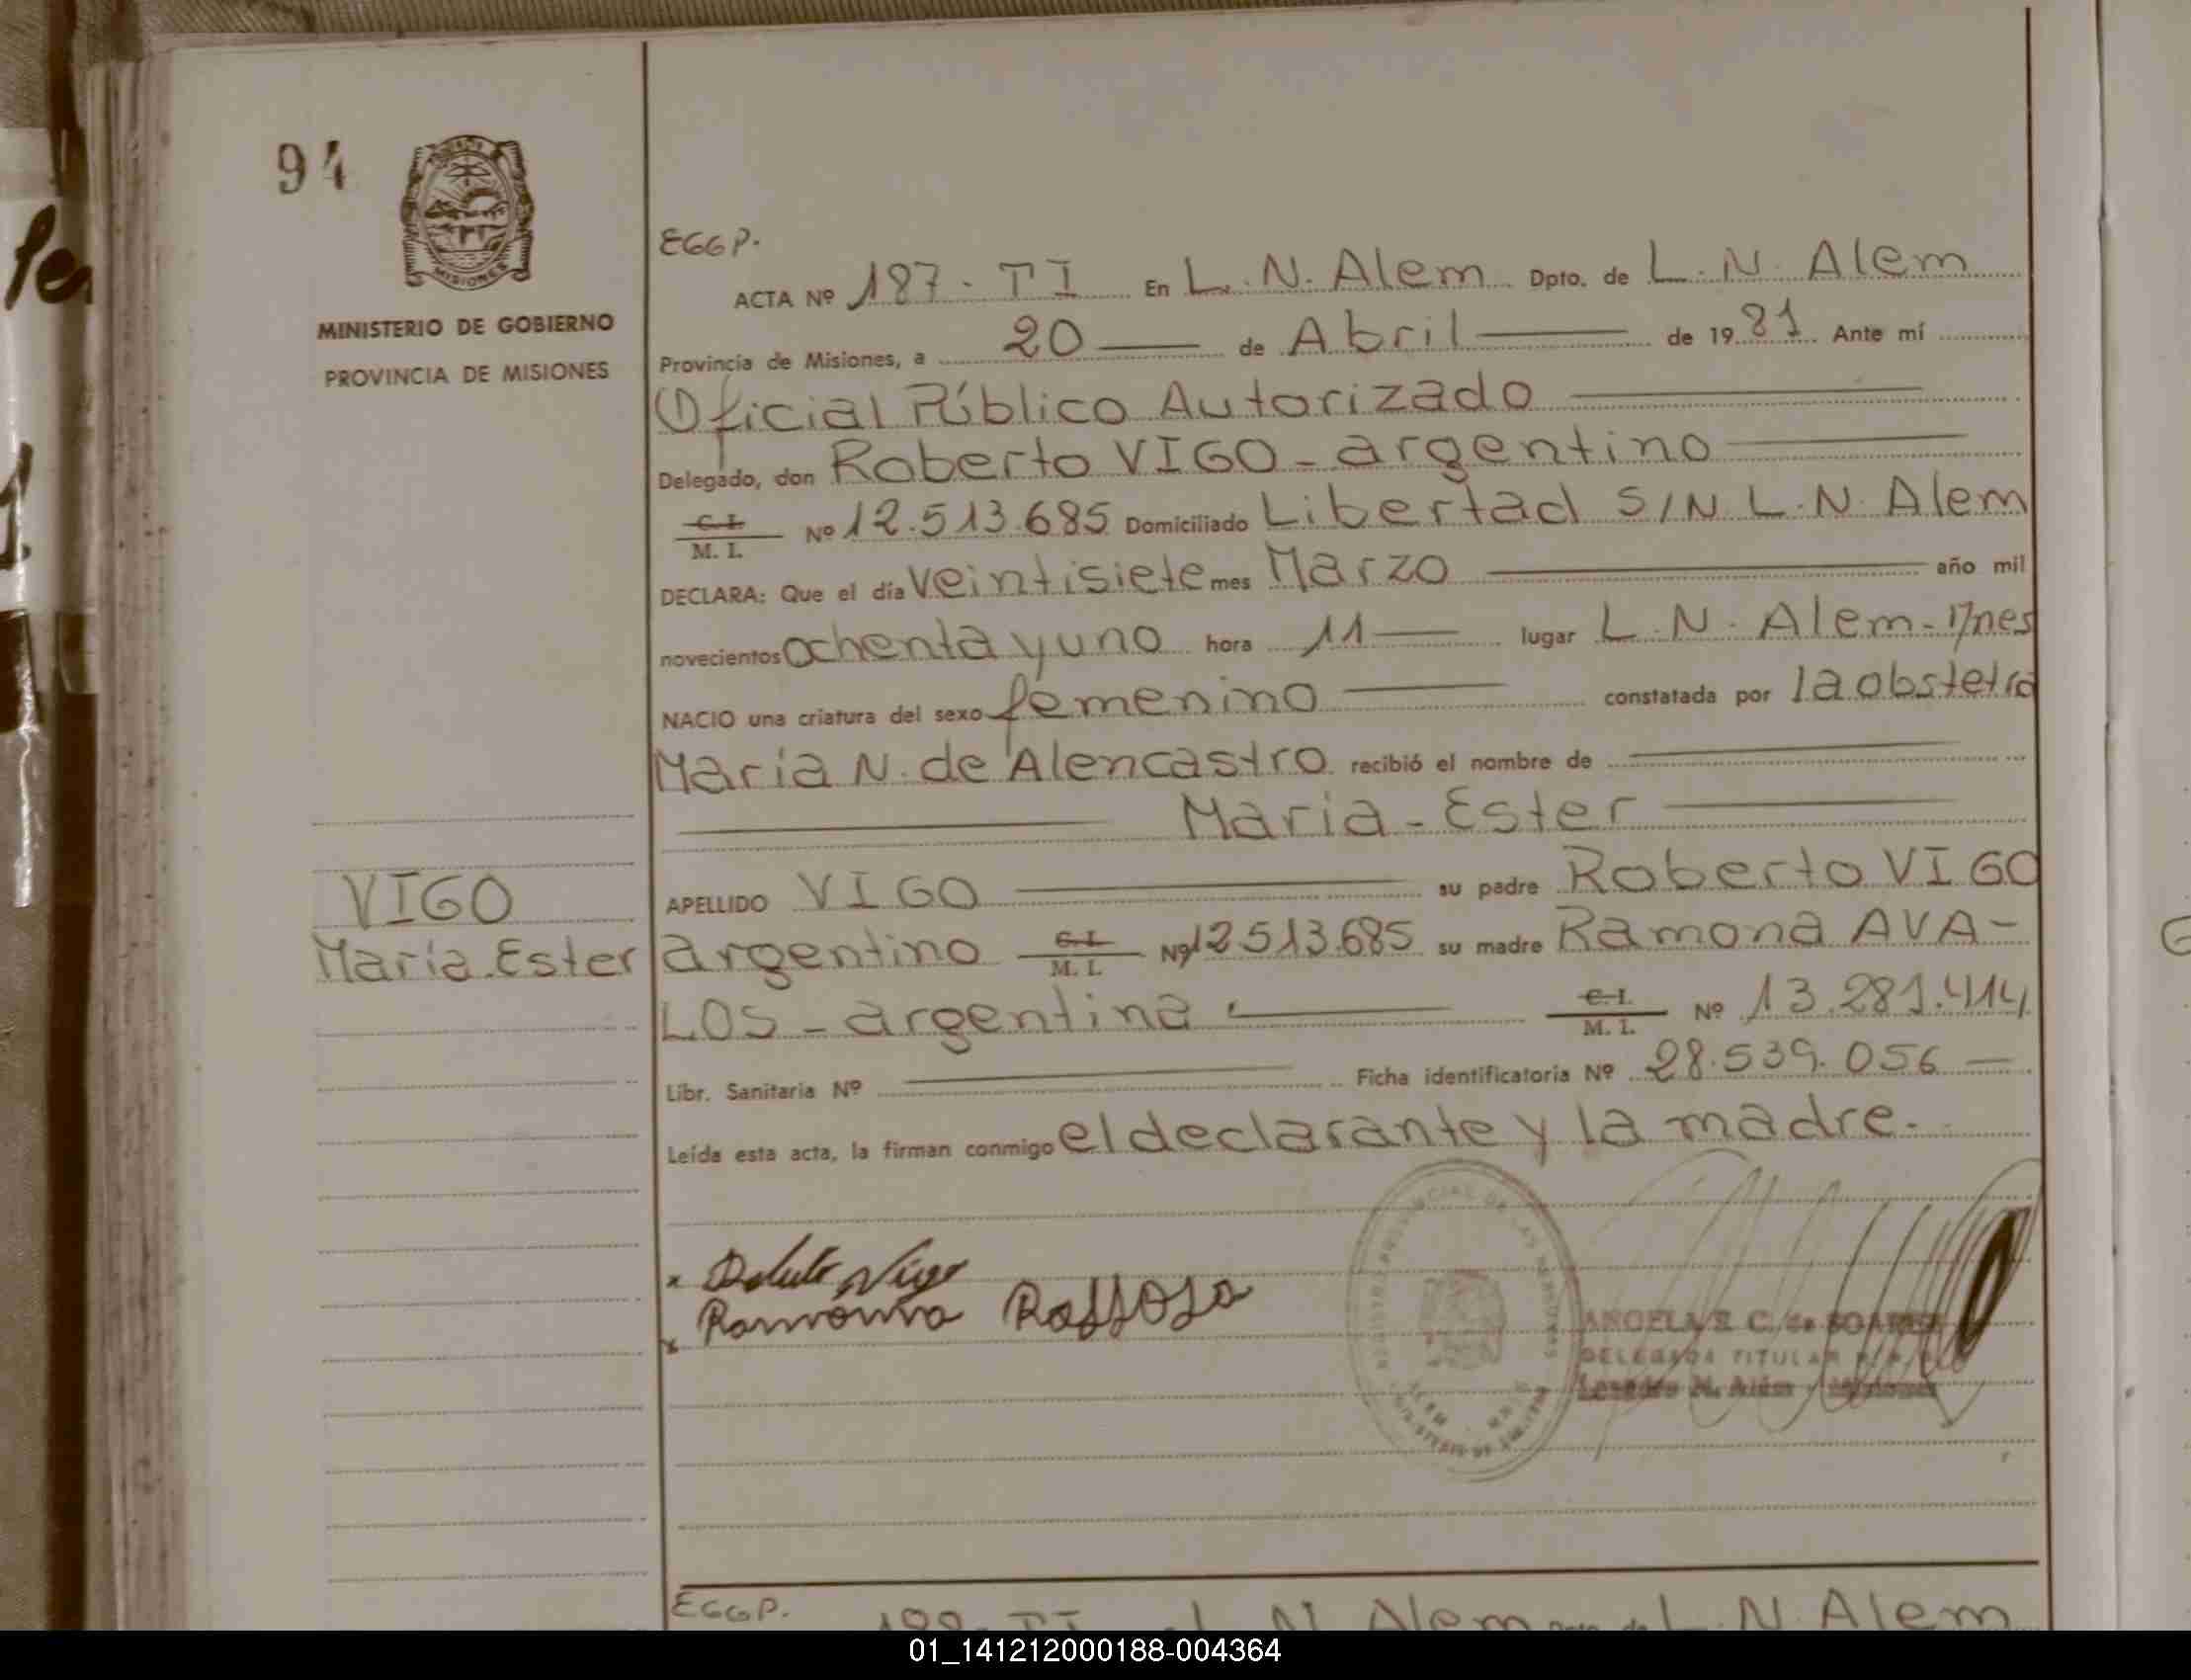 94
MISIONES
MINISTERIO DE GOBIERNO
PROVINCIA DE MISIONES
EGGP.
ACTA Nº 187 - TI En L. N. Alem Dpto. de L. N. Alem
Provincia de Misiones, a 20 de Abril de 1981 Ante mí
Oficial Público Autorizado
Delegado, don Roberto VIGO - argentino
C. I. / M. I. Nº 12.513.685 Domiciliado Libertad S/N L. N. Alem
DECLARA: Que el día veintisiete mes Marzo año mil
novecientos ochenta y uno hora 11 lugar L. N. Alem - Mnes
NACIO una criatura del sexo femenino constatada por la obstetra
Maria N. de Alencastro recibió el nombre de
Maria - Ester
APELLIDO VIGO su padre Roberto VIGO
argentino C. I. / M. I. Nº 12513.685 su madre Ramona AVA-
LOS - argentina C. I. / M. I. Nº 13.281.414
Libr. Sanitaria Nº Ficha identificatoria Nº 28.539.056
Leída esta acta, la firman conmigo el declarante y la madre.
VIGO
María Ester
x Vigo
x Ramona
ANGELA E. C. de SOAREZ
DELEGADA TITULAR
Leandro N. Alem - Misiones
EGGP.
188 - TI L. N. Alem L. N. Alem
01_141212000188-004364